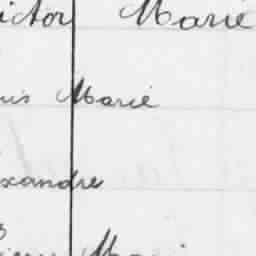 ictor Marie
uis Marie
exandre